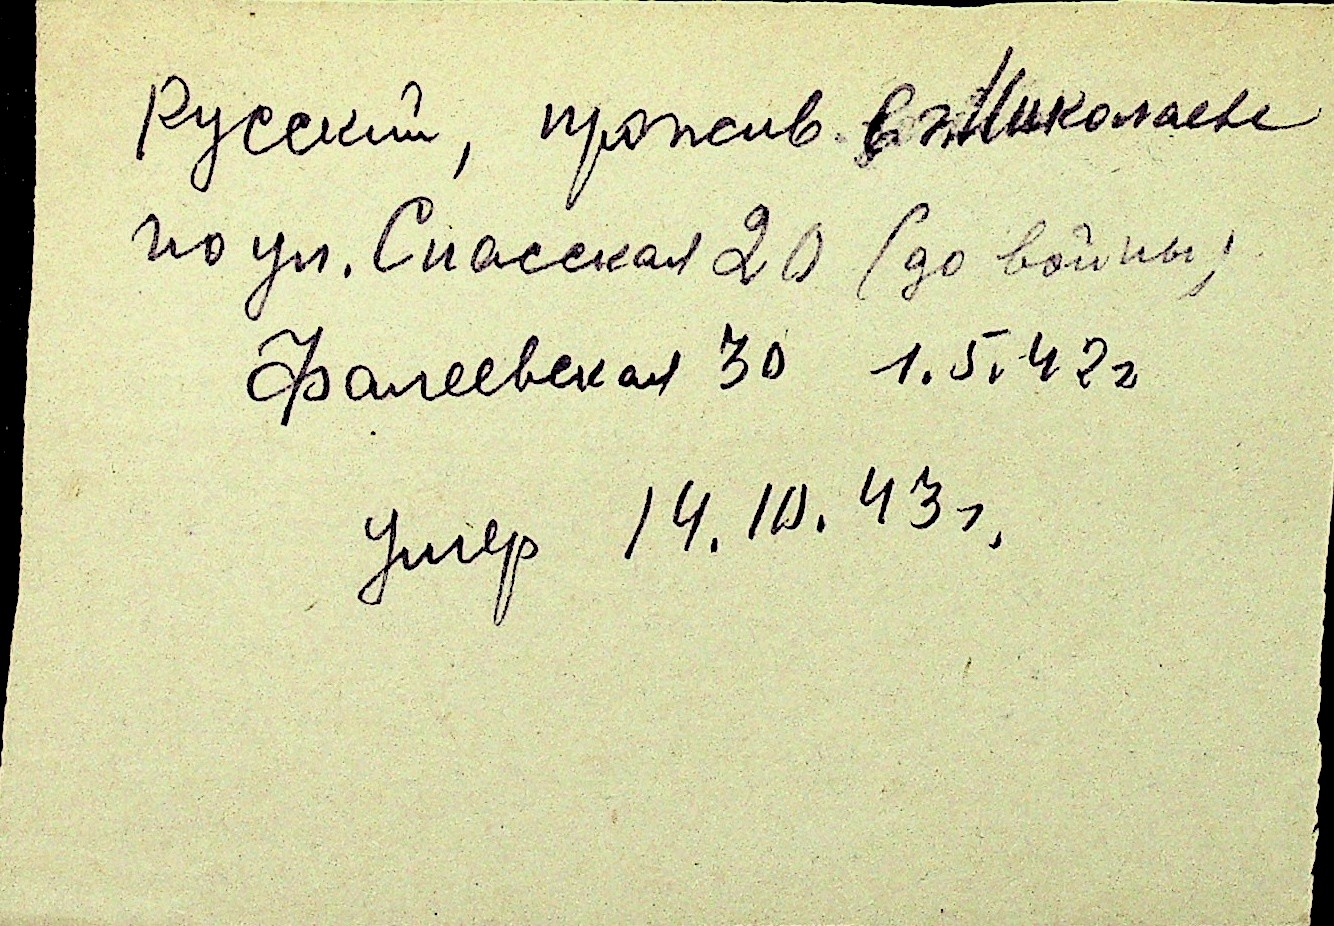 Русский, прожив. в г. Николаеве
по ул. Спасская 20 (до войны)
Фалеевская 30 1.5.42г
умер 14.10.43г.